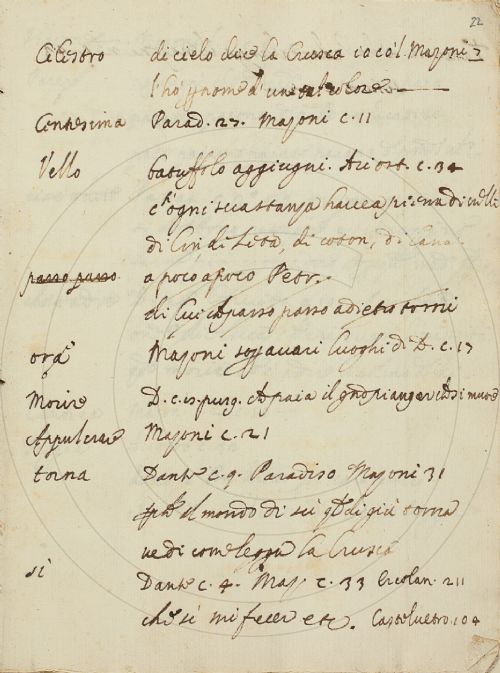 22
Cilestro di cielo dice la Crusca io co'l Mazoni
l'hò p nome d'un tal colore
Centesima Parad. 27. Mazoni c. 11
Vello batuffolo aggiugni. Ariost. c. 34
ch'ogni sua stanza havea piena di velli
di lin di seta, di coton, di lana
passo passo a poco a poco Petr.
di lui passo passo a dietro torni
ora Mazoni sopra vari luoghi di D. c. 17
Morire D. c. purg. il pianger si muore
Appulcrare Mazoni c. 21
torna Dante c. 9. Paradiso Mazoni 31
il mondo di sù qto di giù torna
vedi come legge la Crusca
sì Dante c. 4. Maz. c. 33 Ercolan. 211
che sì mi fecer etc. Castelvetro. 104